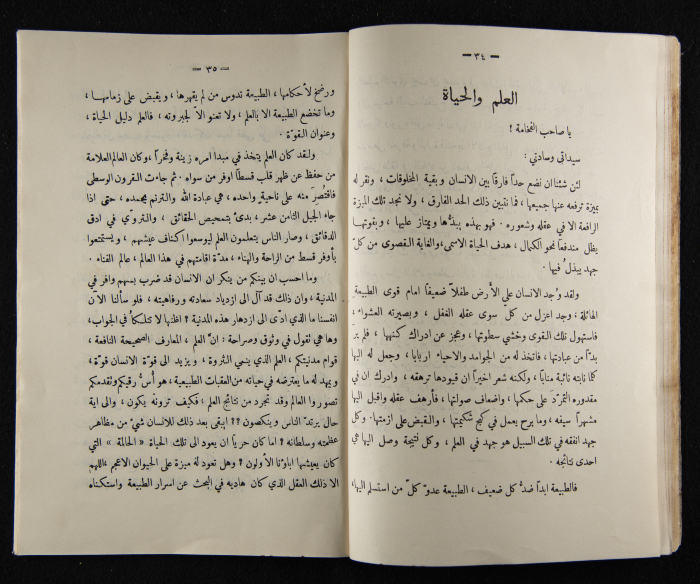 — ٣٤ —
العلم والحياة
يا صاحب الفخامة !
سيداتي وسادتي :
لئن شئنا ان نضع حداً فارقاً بين الانسان وبقية المخلوقات ، ونقر له
بميزة ترفعه عنها جميعها ، فما نتبين ذلك الحد الفارق ، ولا نجد تلك الميزة
الرافعة الا في عقله وشعوره . فهو بهذه يبذُّها ويمتاز عليها ، وبقوتهـا
يظل مندفعاً نحو الكمال ، هدف الحياة الاسمى ، والغاية القصوى من كلّ
جهد يبذلُ فيها .
ولقد وُجد الانسان على الأرض طفلاً ضعيفاً امام قوى الطبيعة
الهائلة : وجد اعزل من كلّ سوى عقله الغفل ، وبصيرته العشواء ،
فاستهول تلك القوى وخشي سطوتها ، وعجز عن ادراك كنهها ، فلم يرَ
بدّاً من عبادتها ، فاتخذ له من الجوامد والاحياء ارباباً ، وجعل له اليها
كلما نابته نائبة مناباً ، ولكنه شعر اخيراً ان قيودها ترهقه ، وادرك ان في
مقدوره التمرّد على حكمها ، واضعاف صولتها ، فأرهف عقله واقبل اليها
مشهراً سيفه ، وما برح يعمل في كبح شكيمتها ، والقبض على ازمتها . وكل
جهد انفقه في تلك السبيل هو جهد في العلم ، وكل نتيجة وصل اليها هي
احدى نتائجه .
فالطبيعة ابداً ضدُّ كل ضعيف ، الطبيعة عدوّ كلّ من استسلم اليها ،
— ٣٥ —
ورضخ لأحكامها ، الطبيعة تدوس من لم يقهرها ، ويقبض على زمامهـا ،
وما تخضع الطبيعة الا بالعلم ، ولا تعنو الاّ لجبروته ، فالعلم دليل الحياة ،
وعنوان القوّة .
ولـقد كان العلم يتخذ في مبدا امره زينة وفخراً ، وكان العالم العلامة
من حفظ عن ظهر قلب قسطاً اوفر من سواه . ثم جاءت القرون الوسطى
فاقتُصِرَ منه على ناحية واحده ، هي عبادة الله والترنم بمجمده ، حتى اذا
جاء الجيل الثامن عشر ، بدئ بتمحيص الحقائق ، والتروّي في ادق
الدقائق ، وصار الناس يتعلمون العلم ليوسعوا اكناف عيشهم ، ويستمتعوا
بأوفر قسط من الراحة والهناء ، مدّة اقامتهم في هذا العالم ، عالم الفناء .
وما احسب ان بينكم من ينكر ان الانسان قد ضرب بسهم وافر في
المدنية ، وان ذلك قد آل الى ازدياد سعادته ورفاهيته ، فلو سألنا الآن
انفسنا ما الذي ادّى الى ازدهار هذه المدنية ؟ اظنها لا تتلكأ في الجواب ،
وها هي تقول في وثوق وصراحة : انّ العلم ، المعارف الصحيحة النافعة ،
قوام مدنيتكم ، العلم الذي ينمي الثروة ، ويزيد الى قوّة الانسان قوة ،
ويمهد له ما يعترضه في حياته من العقبات الطبيعية ، هو أسُّ رقيكم وتقدمكم
تصوروا العالم وقد تجرد من نتائج العلم ، فكيف ترونهُ يكون ، والى اية
حال يرتدّ الناس وينكصون ؟؟ ايبقى بعد ذلك للانسان شيءٌ من مظاهر
عظمته وسلطانه ؟ اما كان حرياً ان يعود الى تلك الحياة « الحالمة » التي
كان يعيشها اباؤنا الأولون ؟ وهل تعود له ميزة على الحيوان الاعجم ، اللهم
الا ذلك العقل الذي كان هاديه في البحث عن اسرار الطبيعة واستكناه